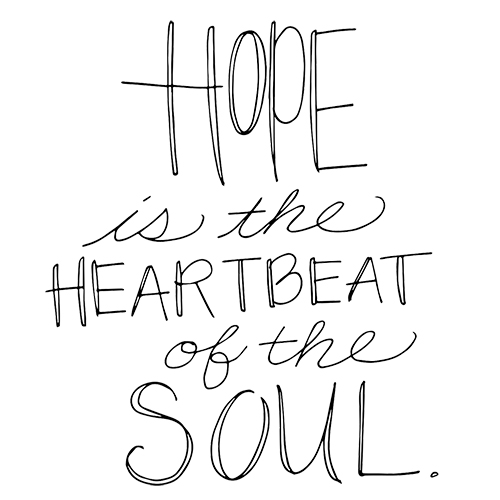 HOPE
is the
HEARTBEAT
of the
SOUL.